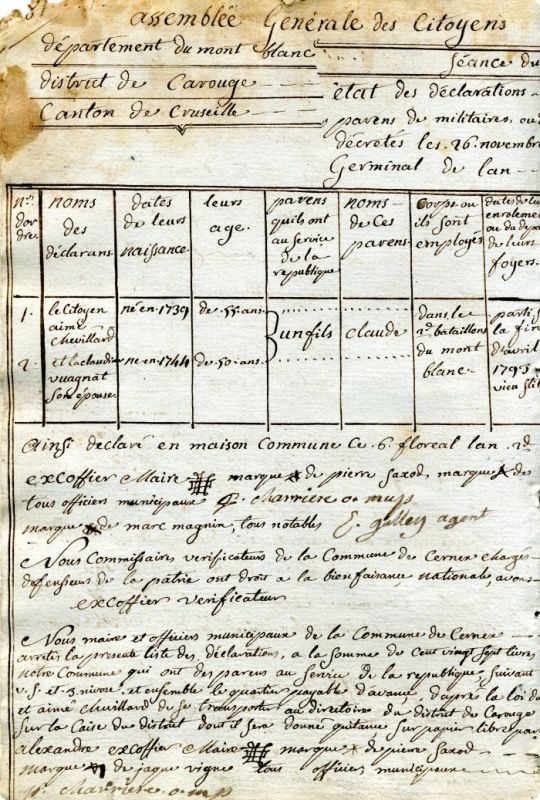 assemblée Générale des Citoyens
département du mont blanc
Séance du
district de Carouge
état des déclarations
Canton de Cruseille
parens de militaires, ou d
décretés les 26. novembre
Germinal de lan
nos. dor dre.
noms des déclarans
dates de leurs naissance.
leurs age.
parens quils ont au service de la republique
noms de ces parens.
corps ou ils sont employés
dates de leu enrolemen ou du depa de leurs foyers.
1.
le Citoyen aimé Chevillard
né en 1739
de 55. ans
un fils
claude
dans le 2d. bataillons du mont blanc.
parti s la fin d'avril 1793 vieu stil
2.
et la claudi vuagnat son épouse.
né en 1744
de 50. ans.
ainsi declaré en maison Commune Ce 6. floreal lan 2d.
excoffier Maire marque de pierre Saxod, marque de
tous officiers municipaux P. charriere o mup
marque de marc magnin, tous notables E. gallay agent
Nous Commissaires verificateurs de la Commune de Cernex charges
defenseurs de la patrie ont droit a la bienfaisance nationale, avons
excoffier verificateur
Nous maire et officiers municipaux de la Commune de Cernex
arretés la presente liste des déclarations, a la somme de Cent vingt sept livres
notre Commune qui ont des parens au Service de la republique, Suivant
v. S. et 3. nivose. et ensemble le quartier payable d'avance, d'après la loi du
et aimé Chevillard de se transporter au directoire du district de Carouge
Sur la Caise du district dont il sera donné quitance sur papier libre par
alexandre excoffier Maire marque de pierre Saxod
marque de jaque vigne tous officiers municipaux
p. charriere o mp